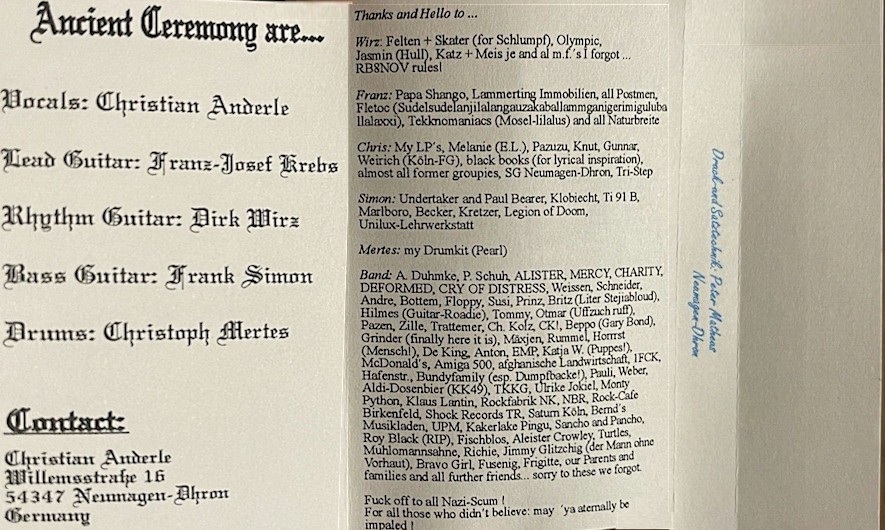 Ancient Ceremony are...
Vocals: Christian Anderle
Lead Guitar: Franz-Josef Krebs
Rhythm Guitar: Dirk Wirz
Bass Guitar: Frank Simon
Drums: Christoph Mertes
Contact:
Christian Anderle
Willemsstraße 16
54347 Neumagen-Dhron
Germany
Thanks and Hello to ...
Wirz: Felten + Skater (for Schlumpf), Olympic,
Jasmin (Hull), Katz + Meis je and al m.f.´s I forgot ...
RB8NOV rules!
Franz: Papa Shango, Lammerting Immobilien, all Postmen,
Fletoc (Sudelsudelanjilalangauzakaballammganigerimiguluba
llalaxxi), Tekknomaniacs (Mosel-lilalus) and all Naturbreite
Chris: My LP's, Melanie (E.L.), Pazuzu, Knut, Gunnar,
Weirich (Köln-FG), black books (for lyrical inspiration),
almost all former groupies, SG Neumagen-Dhron, Tri-Step
Simon: Undertaker and Paul Bearer, Klobiecht, Ti 91 B,
Marlboro, Becker, Kretzer, Legion of Doom,
Unilux-Lehrwerkstatt
Mertes: my Drumkit (Pearl)
Band: A. Duhmke, P. Schuh, ALISTER, MERCY, CHARITY,
DEFORMED, CRY OF DISTRESS, Weissen, Schneider,
Andre, Bottem, Floppy, Susi, Prinz, Britz (Liter Stejiabloud),
Hilmes (Guitar-Roadie), Tommy, Otmar (Uffzuch ruff),
Pazen, Zille, Trattemer, Ch. Kolz, CK!, Beppo (Gary Bond),
Grinder (finally here it is), Mäxjen, Rummel, Horrrst
(Mensch!), De King, Anton, EMP, Katja W. (Puppes!),
McDonald's, Amiga 500, afghanische Landwirtschaft, 1FCK,
Hafenstr., Bundyfamily (esp. Dumpfbacke!), Pauli, Weber,
Aldi-Dosenbier (KK49), TKKG, Ulrike Jokiel, Monty
Python, Klaus Lantin, Rockfabrik NK, NBR, Rock-Cafe
Birkenfeld, Shock Records TR, Saturn Köln, Bernd´s
Musikladen, UPM, Kakerlake Pingu, Sancho and Pancho,
Roy Black (RIP), Fischblos, Aleister Crowley, Turtles,
Muhlomannsahne, Richie, Jimmy Glitzchig (der Mann ohne
Vorhaut), Bravo Girl, Fusenig, Frigitte, our Parents and
families and all further friends... sorry to these we forgot.
Fuck off to all Nazi-Scum !
For all those who didn't believe: may ´ya aternally be
impaled !
Druck-und Satztechnik: Peter Matheus
Neumagen-Dhron